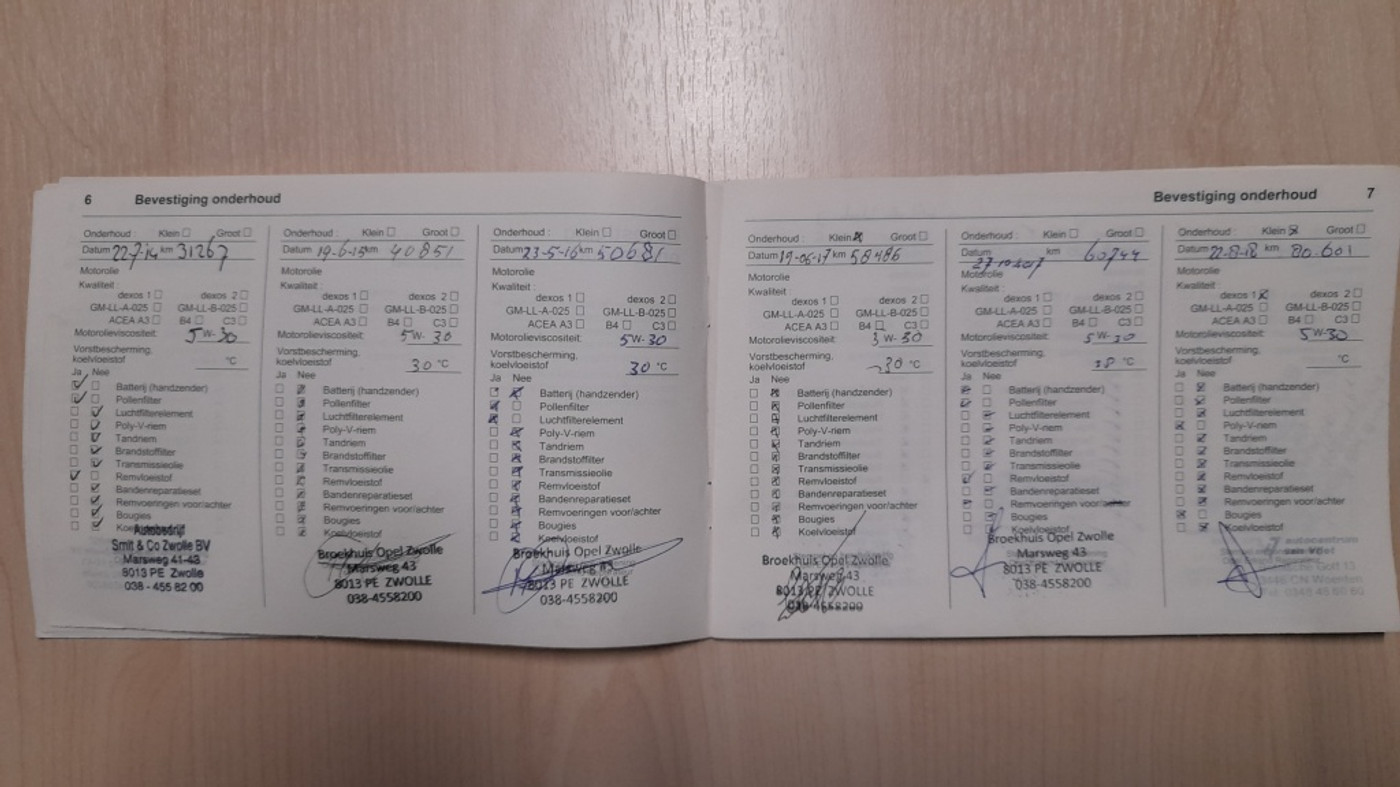 6 Bevestiging onderhoud
Onderhoud : Klein ☐ Groot ☐
Datum 22-7-14 km 31267
Motorolie
Kwaliteit :
dexos 1 ☐ dexos 2 ☐
GM-LL-A-025 ☐ GM-LL-B-025 ☐
ACEA A3 ☐ B4 ☐ C3 ☐
Motorolieviscositeit: 5W-30
Vorstbescherming,
koelvloeistof °C
Ja Nee
Batterij (handzender)
Pollenfilter
Luchtfilterelement
Poly-V-riem
Tandriem
Brandstoffilter
Transmissieolie
Remvloeistof
Bandenreparatieset
Remvoeringen voor/achter
Bougies
Autobedrijf
Smit & Co Zwolle BV
Marsweg 41-43
8013 PE Zwolle
038 - 455 82 00
Onderhoud : Klein ☐ Groot ☐
Datum 19-6-15 km 40851
Motorolie
Kwaliteit :
dexos 1 ☐ dexos 2 ☐
GM-LL-A-025 ☐ GM-LL-B-025 ☐
ACEA A3 ☐ B4 ☐ C3 ☐
Motorolieviscositeit: 5W-30
Vorstbescherming,
koelvloeistof 30 °C
Ja Nee
Batterij (handzender)
Pollenfilter
Luchtfilterelement
Poly-V-riem
Tandriem
Brandstoffilter
Transmissieolie
Remvloeistof
Bandenreparatieset
Remvoeringen voor/achter
Bougies
Koelvloeistof
Broekhuis Opel Zwolle
Marsweg 43
8013 PE ZWOLLE
038-4558200
Onderhoud : Klein ☐ Groot ☐
Datum 23-5-16 km 50681
Motorolie
Kwaliteit :
dexos 1 ☐ dexos 2 ☐
GM-LL-A-025 ☐ GM-LL-B-025 ☐
ACEA A3 ☐ B4 ☐ C3 ☐
Motorolieviscositeit: 5W-30
Vorstbescherming,
koelvloeistof 30 °C
Ja Nee
Batterij (handzender)
Pollenfilter
Luchtfilterelement
Poly-V-riem
Tandriem
Brandstoffilter
Transmissieolie
Remvloeistof
Bandenreparatieset
Remvoeringen voor/achter
Bougies
Koelvloeistof
Broekhuis Opel Zwolle
Marsweg 43
8013 PE ZWOLLE
038-4558200
Bevestiging onderhoud 7
Onderhoud : Klein ☒ Groot ☐
Datum 19-06-17 km 58486
Motorolie
Kwaliteit :
dexos 1 ☐ dexos 2 ☐
GM-LL-A-025 ☐ GM-LL-B-025 ☐
ACEA A3 ☐ B4 ☐ C3 ☐
Motorolieviscositeit:
Vorstbescherming,
koelvloeistof -30 °C
Ja Nee
Batterij (handzender)
Pollenfilter
Luchtfilterelement
Poly-V-riem
Tandriem
Brandstoffilter
Transmissieolie
Remvloeistof
Bandenreparatieset
Remvoeringen voor/achter
Bougies
Koelvloeistof
Broekhuis Opel Zwolle
Marsweg 43
8013 PE ZWOLLE
038-4558200
Onderhoud : Klein ☐ Groot ☐
Datum km 60744
Motorolie
Kwaliteit :
dexos 1 ☐ dexos 2 ☐
GM-LL-A-025 ☐ GM-LL-B-025 ☐
ACEA A3 ☐ B4 ☐ C3 ☐
Motorolieviscositeit: 5W-30
Vorstbescherming,
koelvloeistof °C
Ja Nee
Batterij (handzender)
Pollenfilter
Luchtfilterelement
Poly-V-riem
Tandriem
Brandstoffilter
Transmissieolie
Remvloeistof
Bandenreparatieset
Remvoeringen voor/achter
Bougies
Koelvloeistof
Broekhuis Opel Zwolle
Marsweg 43
8013 PE ZWOLLE
038-4558200
Onderhoud : Klein ☒ Groot ☐
Datum 22-8-18 km 80.601
Motorolie
Kwaliteit :
dexos 1 ☒ dexos 2 ☐
GM-LL-A-025 ☐ GM-LL-B-025 ☐
ACEA A3 ☐ B4 ☐ C3 ☐
Motorolieviscositeit: 5W-30
Vorstbescherming,
koelvloeistof °C
Ja Nee
Batterij (handzender)
Pollenfilter
Luchtfilterelement
Poly-V-riem
Tandriem
Brandstoffilter
Transmissieolie
Remvloeistof
Bandenreparatieset
Remvoeringen voor/achter
Bougies
Koelvloeistof
autocentrum
Golf 13
CN Woerden